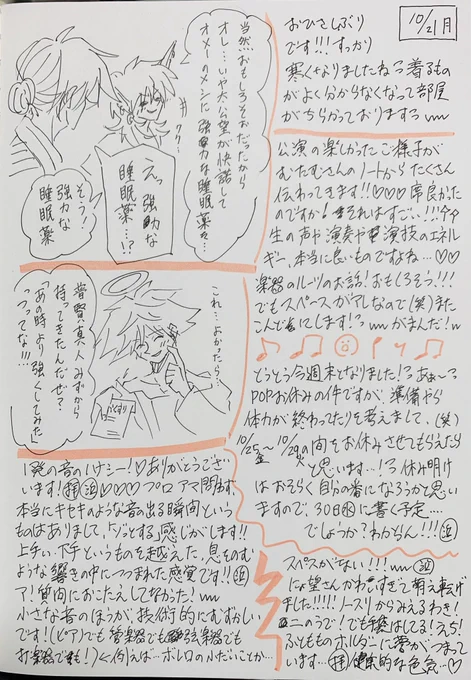 10/21 月
おひさしぶり
です!!! すっかり
寒くなりましたねっ 着るもの
がよく分からなくなって部屋
がちらかっておりますっ
公演の楽しかったご様子が
むたむたさんのノートからたくさん
伝わってきます!!♡♡♡ 席良かった
のですか! それはすごい!!!
生の声や演奏や演技のエネル
ギー、本当に良いものですよね…♡♡
楽器のルーツのお話! おもしろそう!!!
でもスペースがアレなので(笑)また
こんどにします!っ がまんだ!
とうとう今週末となりました!っ あぁ〜っ
POPお休みの件ですが、準備やら
体力が終わってたりを考えまして、(笑)
10/25金〜10/29火の間をお休みさせてもらえたら
と思います…!っ 休み明け
はおそらく自分の番になろうかと思い
ますので、30日水に書く予定…
でしょうか?わからん!!!
当然おもしろそおだったから
オレ…いや太公望が快諾して
オメーのメシに強力な睡眠薬を…
えっ強力な
睡眠薬…!?
そう!
強力な
睡眠薬
これ…よかったら…
普賢真人みずから
持ってきたんだぜ?
「あの時より強くしてみた」
っつってな!!!
1発の音のハナシー!♡ ありがとうござ
います! ♡♡♡ プロアマ問わず、
本当にキセキのような音の出る瞬間という
ものはありまして、「ゾッとする」感じがします!!
上手い、下手というものを越えた、息をのむ
ような響きの中につつまれた感覚です!!
ア!質問におこたえしてなかった!
小さな音のほうが、技術的にむずかしい
です!(ピアノでも管楽器でも弦楽器でも
打楽器でも!)<(例えば…ボレロの小だいことか…
スペースがない!!!
にょ望さんかわいすぎて萌え転げ
ました!!!!! ノースリからみえるわき!
ニのうで! でも手袋はしてる!えろ!
ふとももホルダーに夢がつまって
います… 健康的な色気…♡